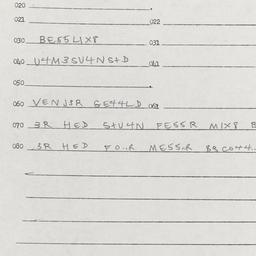 020
021 022
030 BE55LIX8 031
040 U4M3SU4NS+D 041
050
060 VENJ3R GE44LD 061
070 3R HED S+U4N FESSR MIX8
080 3R HED MESSR